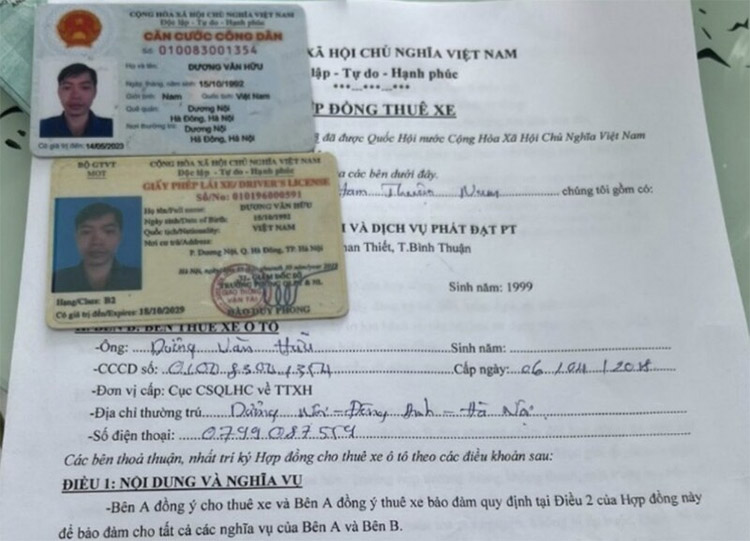 CỘNG HÒA XÃ HỘI CHỦ NGHĨA VIỆT NAM
Độc lập - Tự do - Hạnh phúc
CĂN CƯỚC CÔNG DÂN
Số: 010083001354
Họ và tên:
DƯƠNG VĂN HỮU
Ngày, tháng, năm sinh: 15/10/1992
Giới tính: Nam Quốc tịch: Việt Nam
Quê quán: Dương Nội
Hà Đông, Hà Nội
Nơi thường trú: Dương Nội
Hà Đông, Hà Nội
Có giá trị đến: 14/05/2023
BỘ GTVT
MOT
CỘNG HÒA XÃ HỘI CHỦ NGHĨA VIỆT NAM
Độc lập - Tự do - Hạnh phúc
GIẤY PHÉP LÁI XE/ DRIVER'S LICENSE
Số/No: 010196000591
Họ tên/Full name: DƯƠNG VĂN HỮU
Ngày sinh/Date of Birth: 15/10/1992
Quốc tịch/Nationality: VIỆT NAM
Nơi cư trú/Address:
P. Dương Nội, Q. Hà Đông, TP. Hà Nội
Hà Nội,
ĐÀO DUY PHONG
Hạng/Class: B2
Có giá trị đến/Expires: 18/10/2029
XÃ HỘI CHỦ NGHĨA VIỆT NAM
lập - Tự do - Hạnh phúc
***---***---***
P ĐỒNG THUÊ XE
đã được Quốc Hội nước Cộng Hòa Xã Hội Chủ Nghĩa Việt Nam
a các bên dưới đây.
Ham Thuận Nam chúng tôi gồm có:
I VÀ DỊCH VỤ PHÁT ĐẠT PT
han Thiết, T.Bình Thuận
Sinh năm: 1999
BÊN THUÊ XE Ô TÔ
-Ông: Dương Văn Hữu Sinh năm:
-CCCD số: 010083001354 Cấp ngày: 06/04/2018
-Đơn vị cấp: Cục CSQLHC về TTXH
-Địa chỉ thường trú Dương Nội - Đông Anh - Hà Nội
-Số điện thoại: 0799087559
Các bên thỏa thuận, nhất trí ký Hợp đồng cho thuê xe ô tô theo các điều khoản sau:
ĐIỀU 1: NỘI DUNG VÀ NGHĨA VỤ
-Bên A đồng ý cho thuê xe và Bên A đồng ý thuê xe bảo đảm quy định tại Điều 2 của Hợp đồng này
để bảo đảm cho tất cả các nghĩa vụ của Bên A và Bên B.